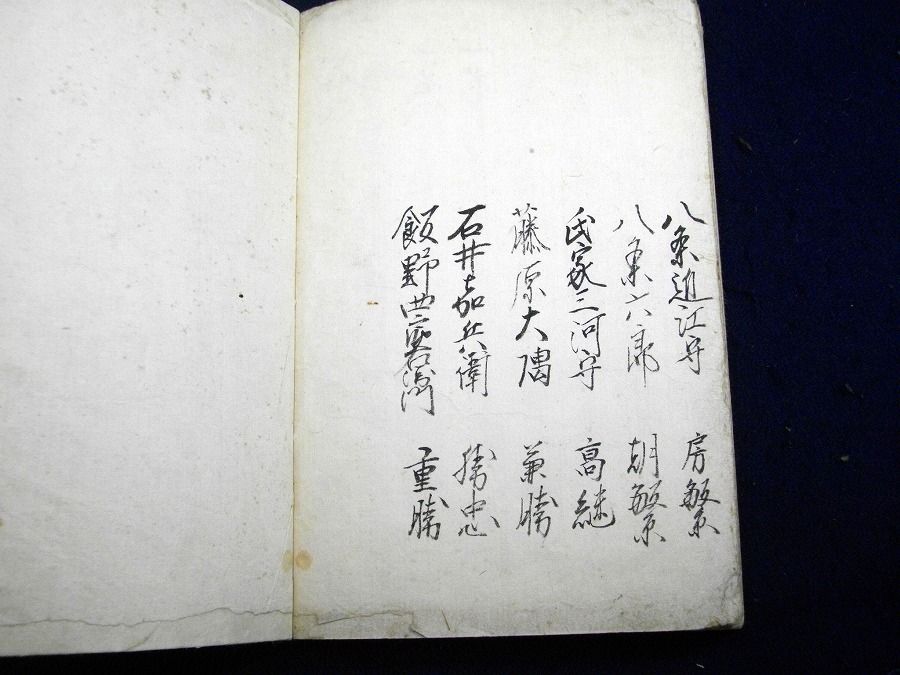 八条近江守 房繁
八条六郎 朝繁
氏家三河守 高継
藤原大隅 兼勝
石井嘉兵衛 勝忠
飯野 重勝